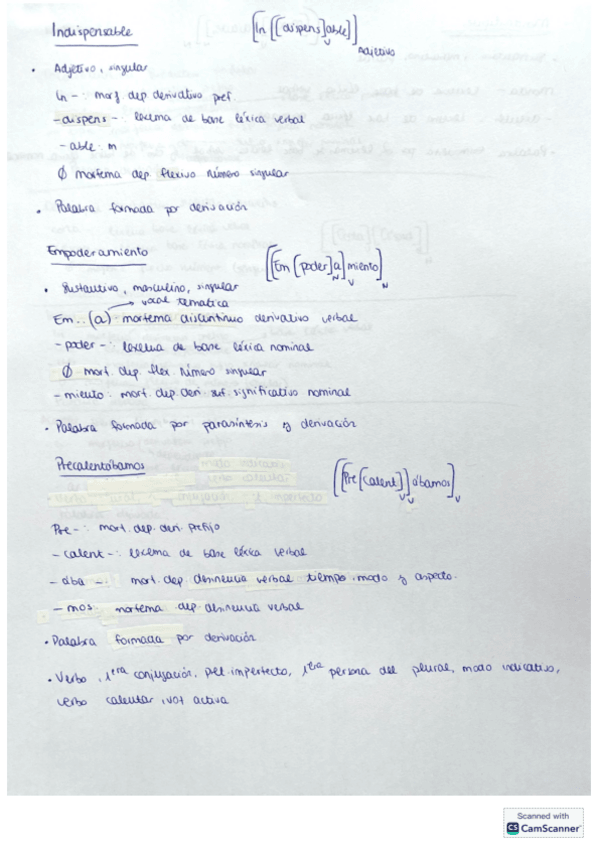 Indispensable
[In [[dispens]able]]
V
Adjetivo
• Adjetivo, singular
In -: morf dep derivativo pref.
- dispens -: lexema de base léxica verbal
- able: m
∅ morfema dep. flexivo número singular
• Palabra formada por derivación
Empoderamiento
[[Em [poder]a]miento]
N V N
• Sustantivo, masculino, singular
→ vocal temática
Em..(a) - morfema discontinuo derivativo verbal
- poder -: lexema de base léxica nominal
∅ mort. dep. flex. número singular
- miento: mort. dep. deri. suf. significativo nominal
• Palabra formada por parasíntesis y derivación
Precalentábamos
[[Pre[calent]]ábamos]
V V V
Pre -: mort. dep. deri. prefijo
- calent -: lexema de base léxica verbal
- aba -: mort. dep. desinencia verbal tiempo, modo y aspecto.
- mos: mortema dep desinencia verbal
• Palabra formada por derivación
• Verbo, 1era conjugación, pret. imperfecto, 1era persona del plural, modo indicativo,
verbo calentar, voz activa
Scanned with
CS CamScanner